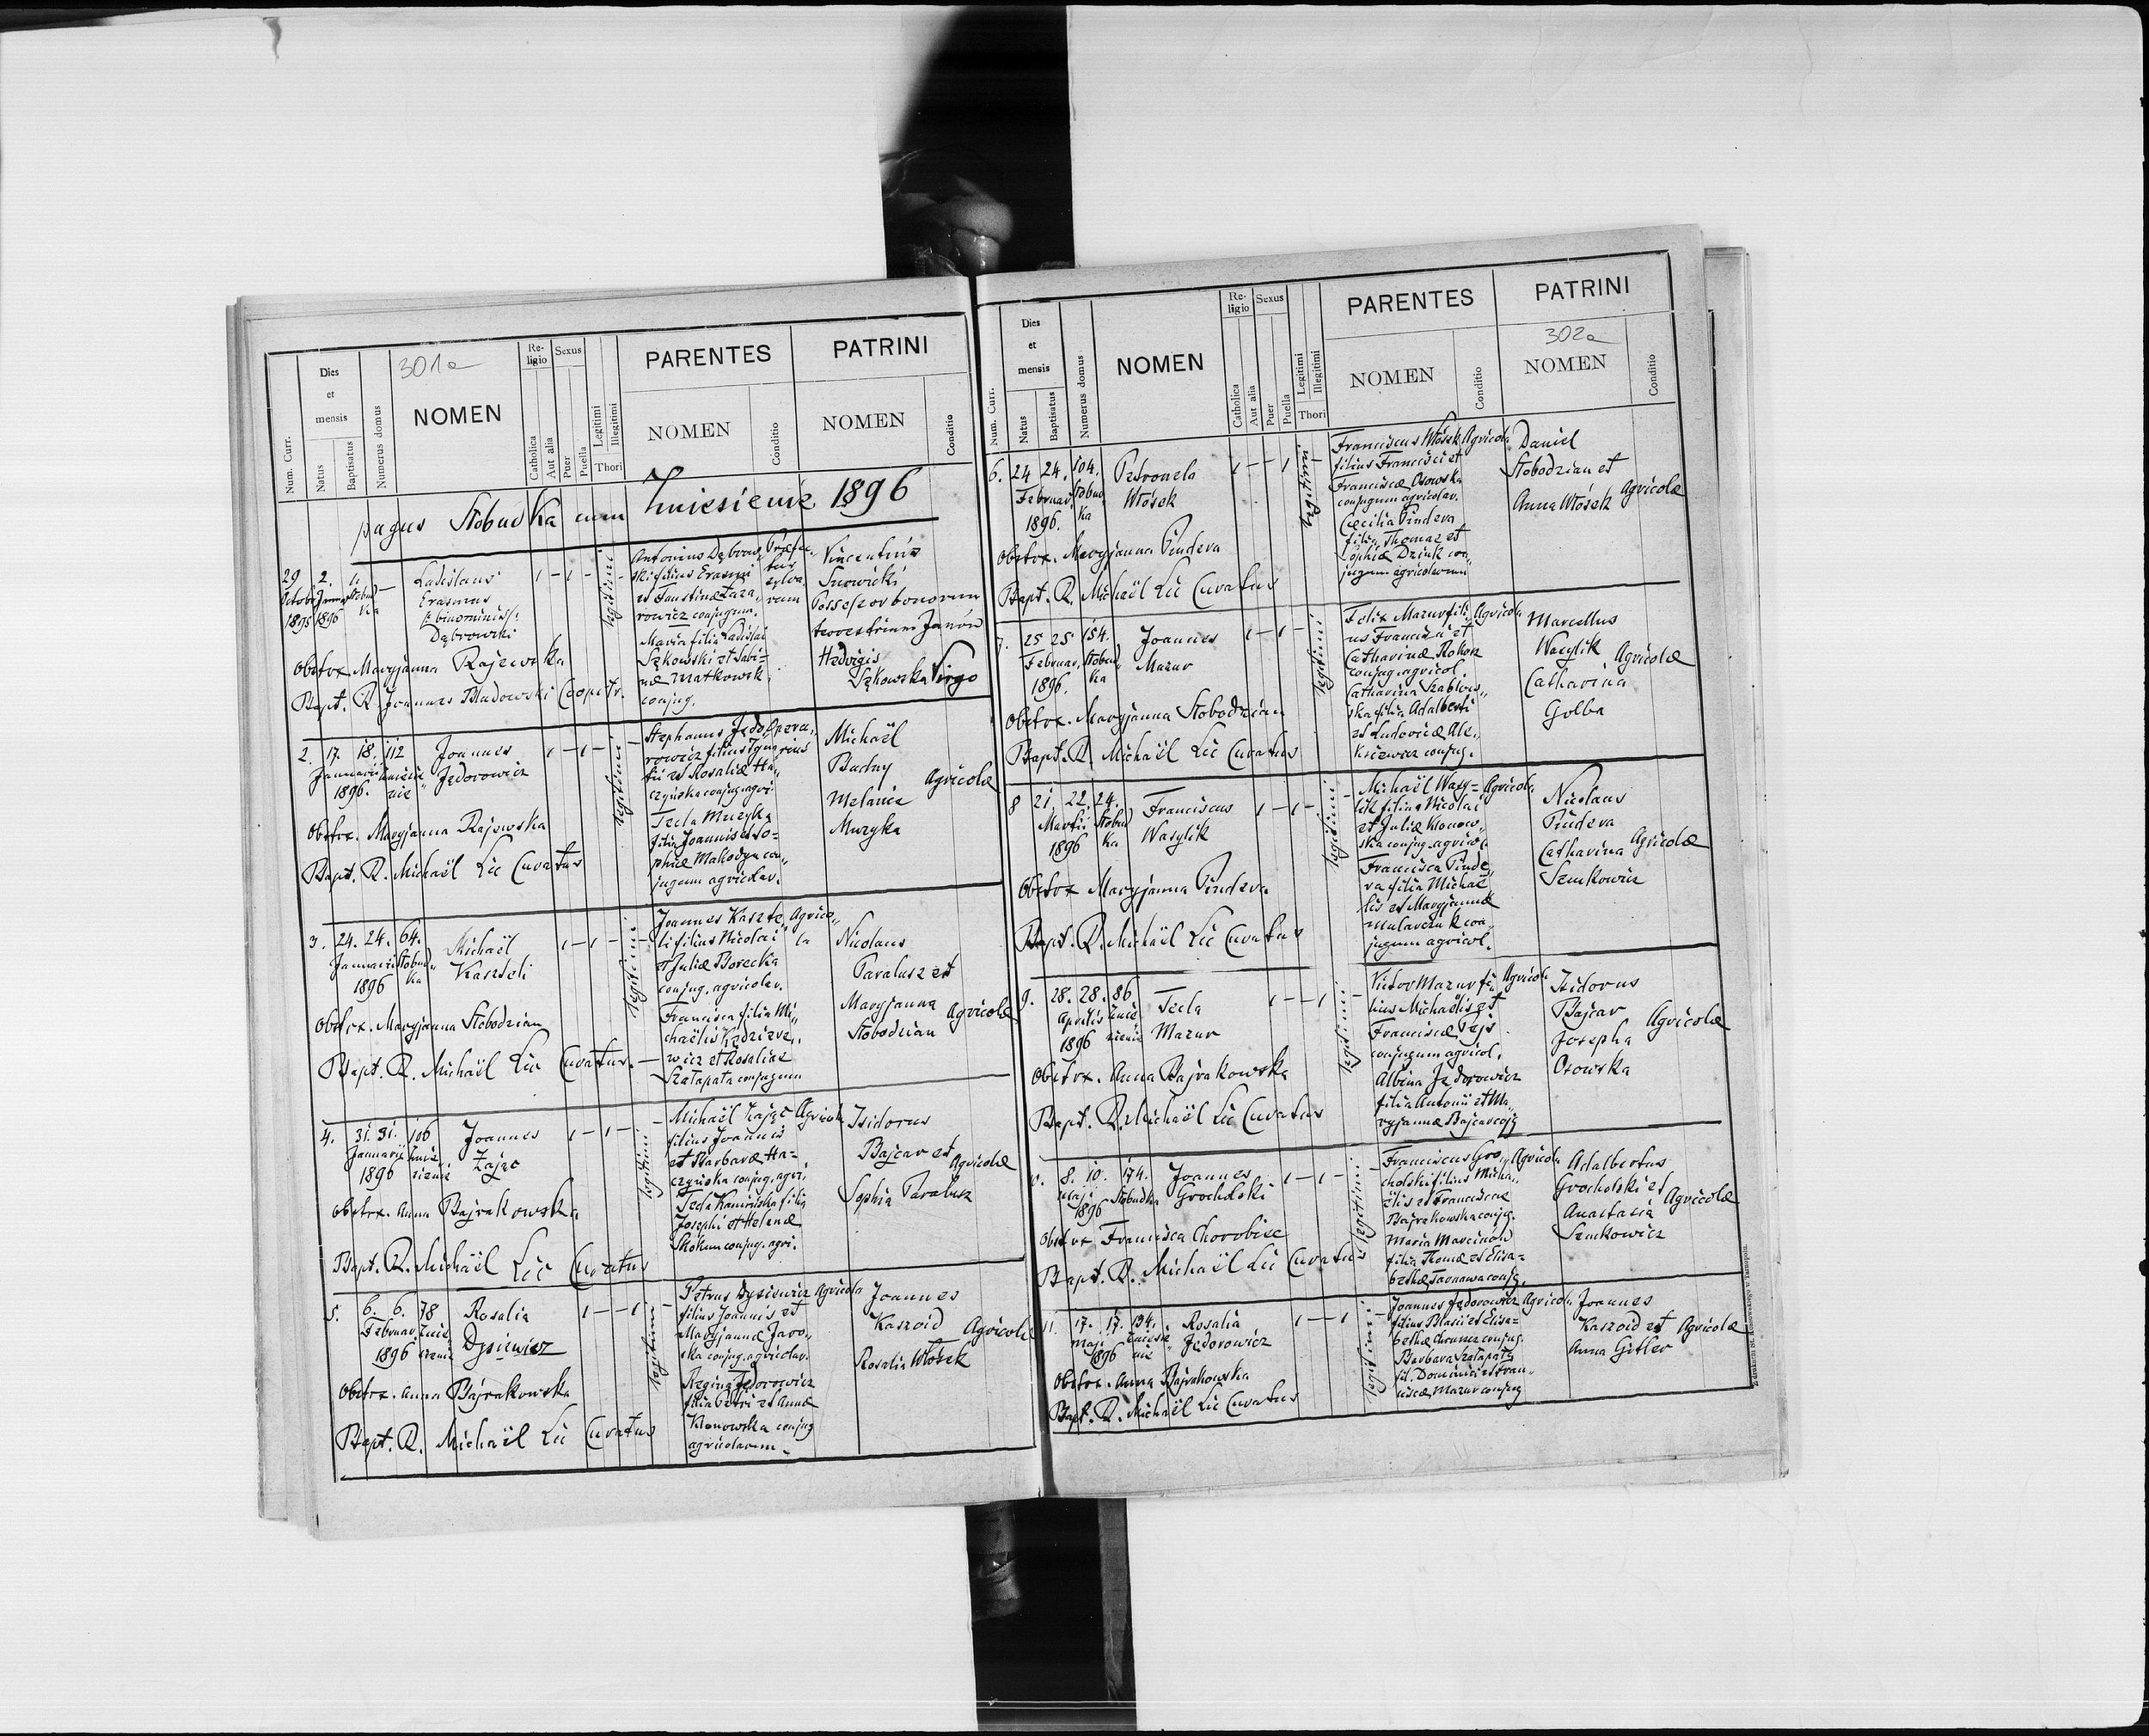 301a
Num. Curr.
Dies et mensis
Natus
Baptisatus
Numerus domus
NOMEN
Religio
Catholica
Aut alia
Sexus
Puer
Puella
Legitimi
Illegitimi
Thori
PARENTES
NOMEN
Conditio
PATRINI
NOMEN
Conditio
pagus Słobudka cum Zniesienie 1896
29 2. 1.
Octobr Januar Słobud
1895 1896 ka
Ladislaus
Erasmus
binominis
Dąbrowski
1 – 1 –
legitimi
Antonius Dąbrow
ski filius Erasmi
et Faustinæ Laza
rowicz conjugum.
Maria filia Ladislai
Sękowski et Sabi=
næ Matkowsk
conjug.
Præfec
tus
sylva
rum
Vincentius
Snowicki
Possessor bonorum
terrestrium Janów
Hedvigis
Sękowska Virgo
Obstrx Maryjanna Rajewska
Bapt. R. Joannes Cooprtr.
2. 17. 18. 112
Januarii Zniesie
1896. nie
Joannes
Jędorowicz
1 – 1 –
legitimi
Stephanus Jędo
rowicz filius Igna
tii et Rosaliæ Ha
czyńska conjug. agri
Tecla Muzyka
filia Joannis et So=
phiæ Makodyn con
jugum agricolar.
Opera
rius
Michaël
Budny
Melania
Muzyka
Agricolæ
Obstrx. Maryjanna Rajewska
Bapt. R. Michaël Lic Curatus
3. 24. 24. 64.
Januarii Słobud
1896 ka
Michaël
Kaszteli
1 – 1 –
legitimi
Joannes Kaszte
li filius Nicolai
et Juliæ Borecka
conjug. agricolar.
Francisca filia Mi
chaëlis Kędzier
wicz et Rosaliæ
Szałapata conjugum
Agrico
la
Nicolaus
Paralusz et
Maryjanna
Słobodzian
Agricolæ
Obstrx. Maryjanna Słobodzian
Bapt. R. Michaël Lic Curatus.
4. 31. 31. 106
Januarii Znie
1896 sienie
Joannes
Zając
1 – 1 –
legitimi
Michaël Zając Agricola
filius Joannis
et Barbaræ Ha=
czyńska conjug. agri
Tecla Kamińska filia
Josephi et Helenæ
Skokun conjug. agri.
Isidorus
Bajcar et
Sophia Paralusz
Agricolæ
Obstrx. Anna Bajrakowska
Bapt. R. Michaël Lic Curatus
5. 6. 6. 78
Februar. Znie
1896 sienie
Rosalia
Dysiewicz
1 – – 1
legitimi
Petrus Dysiewicz Agricola
filius Joannis et
Maryjannæ Jawo
ska conjug. agricolar.
Regina Jędorowicz
filia Petri et Annæ
Klonowska conjug
agricolarum.
Joannes
Kaszoid
Rosalia Włósek
Agricolæ
Obstrx. Anna Bajrakowska
Bapt. R. Michaël Lic Curatus
Num. Curr.
Dies et mensis
Natus
Baptisatus
Numerus domus
NOMEN
Religio
Catholica
Aut alia
Sexus
Puer
Puella
Legitimi
Illegitimi
Thori
PARENTES
NOMEN
Conditio
PATRINI
302a
NOMEN
Conditio
6. 24 24. 104.
Februar. Słobud
1896. ka
Petronela
Włósek
1 – – 1
legitimi
Franciscus Włósek Agricola
filius Francisci et
Franciscæ Osowska
conjugum agricolar.
Cæcilia Pindera
filia Thomæ et
Sophiæ Dziuk con
jugum agricolarum
Daniel
Słobodzian et
Anna Włósek
Agricolæ
Obstrx. Maryjanna Pindera
Bapt. R. Michaël Lic Curatus
7. 25 25 154.
Februar. Słobud
1896. ka
Joannes
Mazur
1 – 1 –
legitimi
Felix Mazur fili Agricola
us Francisci et
Catharinæ Rokosz
conjug. agricol.
Catharina Szablow
ska filia Adalberti
et Ludovicæ Ale
ksiewicz conjug.
Marcellus
Wasylik
Catharina
Golba
Agricolæ
Obstrx. Maryjanna Słobodzian
Bapt. R. Michaël Lic Curatus
8 21. 22. 24.
Martii Słobud
1896 ka
Franciscus
Wasylik
1 – 1 –
legitimi
Michaël Wasy= Agricola
lik filius Nicolai
et Juliæ Klonow
ska conjug. agricol.
Francisca Pinde
ra filia Michaë
lis et Maryjannæ
Mularczuk con
jugum agricol.
Nicolaus
Pindera
Catharina
Szmkowicz
Agricolæ
Obstrx Maryjanna Pindera
Bapt. R. Michaël Lic Curatus
9. 28. 28. 86
Aprilis Znie
1896 sienie
Tecla
Mazur
1 – – 1
legitimi
Victor Mazur fi Agricola
lius Michaëlis et
Franciscæ Pejs
conjugum agricol.
Albina Jędorowicz
filia Antonii et Ma
ryjannæ Bajcar cojg
Isidorus
Bajcar
Josepha
Osowska
Agricolæ
Obstrx. Anna Bajrakowska
Bapt. R. Michaël Lic Curatus
8. 10. 174.
Maji Słobudka
1896
Joannes
Grocholski
1 – 1 –
legitimi
Franciscus Gro Agricola
cholski filius Micha
ëlis et Franciscæ
Bajrakowska conjug.
Maria Marcinów
filia Thomæ et Elisa=
bethæ Tarnawa conjg.
Adalbertus
Grocholski et
Anastasia
Szmkowicz
Agricolæ
Obstrx. Francisca Chorobiec
Bapt. R. Michaël Lic Curatus
11. 17. 17. 134.
Maji Zniesie
1896 nie
Rosalia
Jędorowicz
1 – – 1
legitimi
Joannes Jędorowicz Agricola
filius Blasii et Elisa=
bethæ Chromcz conjug.
Barbara Szałapata
fil. Dominici et Fran
ciscæ Mazur conjug
Joannes
Kaszoid et
Anna Gitler
Agricolæ
Obstrx. Anna Bajrakowska
Bapt. R. Michaël Lic Curatus